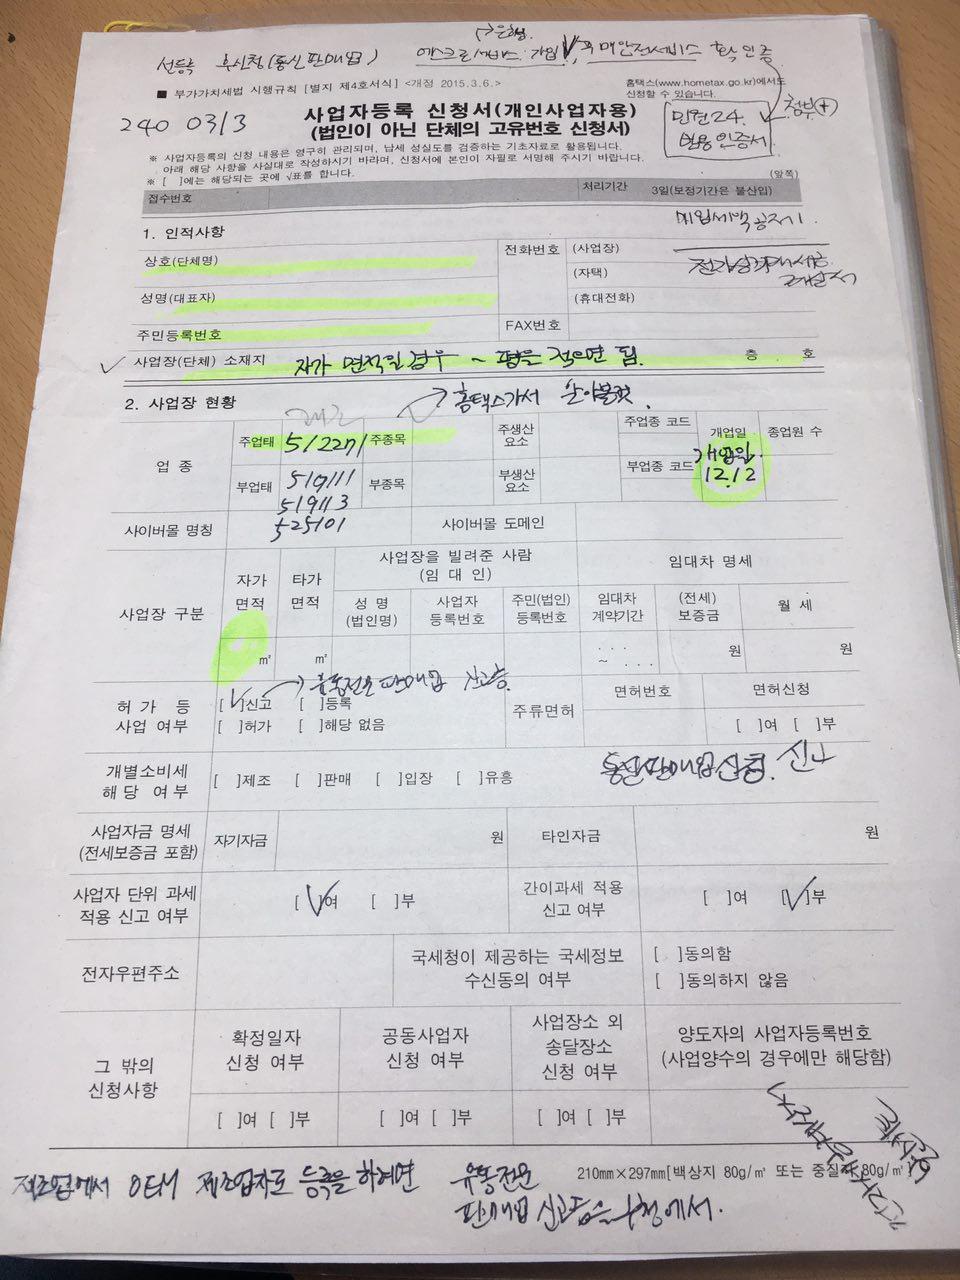 은행
선등록 후신청(통신판매업) 에스크로서비스 가입 구매안전서비스 확인증
■ 부가가치세법 시행규칙 [별지 제4호서식] <개정 2015.3.6.>
홈택스(www.hometax.go.kr)에서도
신청할 수 있습니다.
240 0313
사업자등록 신청서(개인사업자용)
(법인이 아닌 단체의 고유번호 신청서)
민원24.
범용인증서
첨부(+)
※ 사업자등록의 신청 내용은 영구히 관리되며, 납세 성실도를 검증하는 기초자료로 활용됩니다.
아래 해당 사항을 사실대로 작성하시기 바라며, 신청서에 본인이 자필로 서명해 주시기 바랍니다.
※ [ ]에는 해당되는 곳에 √표를 합니다.
(앞쪽)
접수번호 처리기간 3일(보정기간은 불산입)
매입세액공제
1. 인적사항
상호(단체명) 전화번호 (사업장)
(자택)
성명(대표자) (휴대전화)
주민등록번호 FAX번호
✓ 사업장(단체) 소재지 자가 면적일 경우 ~ 평을 적으면 됨. 층 호
2. 사업장 현황 홈택스가서 알아볼것.
업 종 주업태 512271 주종목 주생산 요소 주업종 코드 개업일 종업원 수
개업일
부업태 519111 부종목 부생산 요소 부업종 코드 12.12
519113
525101
사이버몰 명칭 사이버몰 도메인
사업장 구분 자가 면적 타가 면적 사업장을 빌려준 사람 (임 대 인) 임대차 명세
성 명 (법인명) 사업자 등록번호 주민(법인) 등록번호 임대차 계약기간 (전세) 보증금 월 세
㎡ ㎡ . . . ~ . . . 원 원
유통전문판매업 신고증.
허 가 등 사업 여부 [✓]신고 [ ]등록 주류면허 면허번호 면허신청
[ ]허가 [ ]해당 없음 [ ]여 [ ]부
통신판매업신청. 신고
개별소비세 해당 여부 [ ]제조 [ ]판매 [ ]입장 [ ]유흥
사업자금 명세 (전세보증금 포함) 자기자금 원 타인자금 원
사업자 단위 과세 적용 신고 여부 [✓]여 [ ]부 간이과세 적용 신고 여부 [ ]여 [✓]부
전자우편주소 국세청이 제공하는 국세정보 수신동의 여부 [ ]동의함
[ ]동의하지 않음
그 밖의 신청사항 확정일자 신청 여부 공동사업자 신청 여부 사업장소 외 송달장소 신청 여부 양도자의 사업자등록번호 (사업양수의 경우에만 해당함)
[ ]여 [ ]부 [ ]여 [ ]부 [ ]여 [ ]부
210㎜×297㎜[백상지 80g/㎡ 또는 중질지 80g/㎡]
제조업에서 OEM 제조업자로 등록을 하려면 유통전문
판매업 신고증 구청에서.